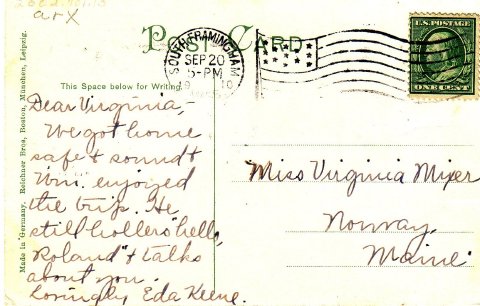 2002.401.13
arX
POST CARD
SOUTH FRAMINGHAM
SEP 20
5-PM
19 10
U.S. POSTAGE
ONE CENT
This Space below for Writing.
Made in Germany. Reichner Bros, Boston, München, Leipzig.
Dear Virginia,-
We got home
safe & sound &
Wm. enjoyed
the trip. He
still hollers "hello,
Roland" & talks
about you.
Lovingly Eda Keene.
Miss Virginia Mixer
Norway,
Maine